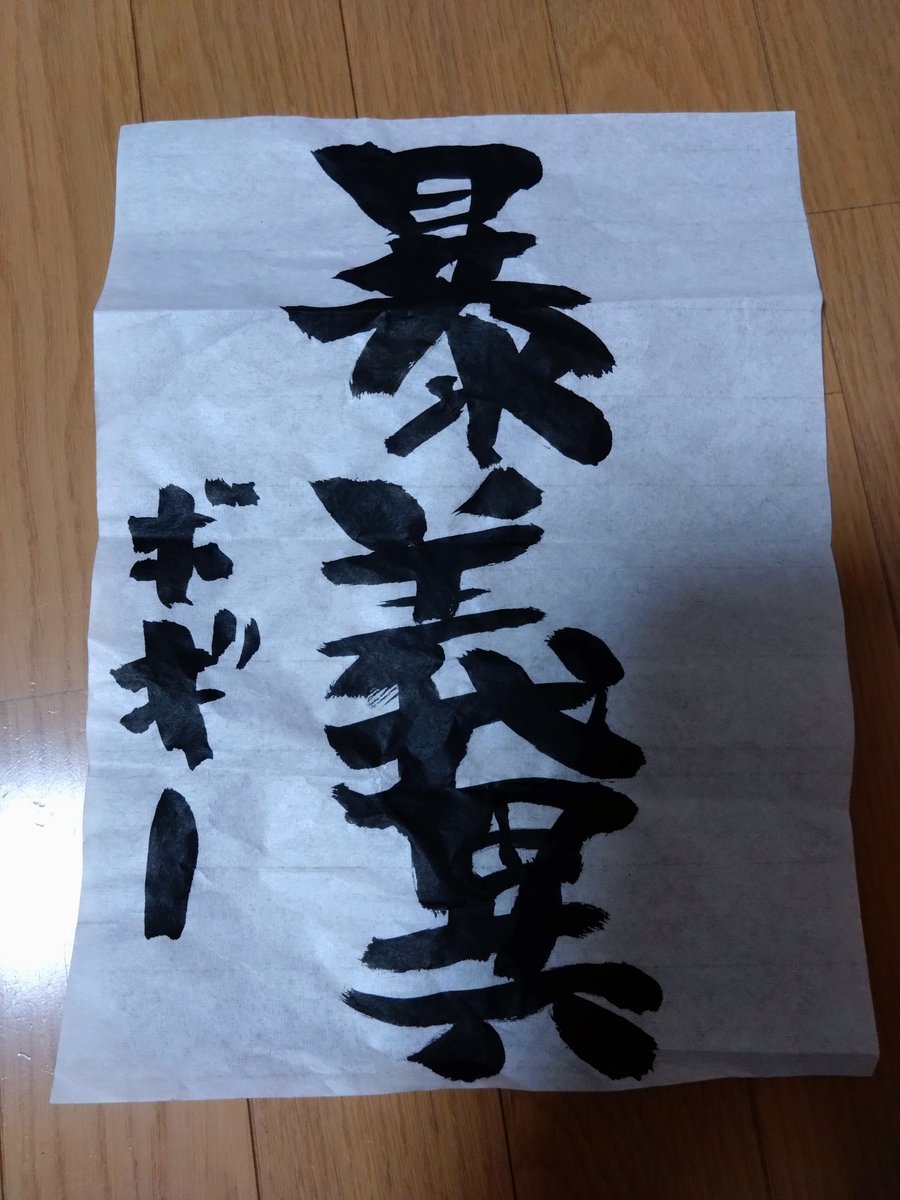 暴義異
ボギー